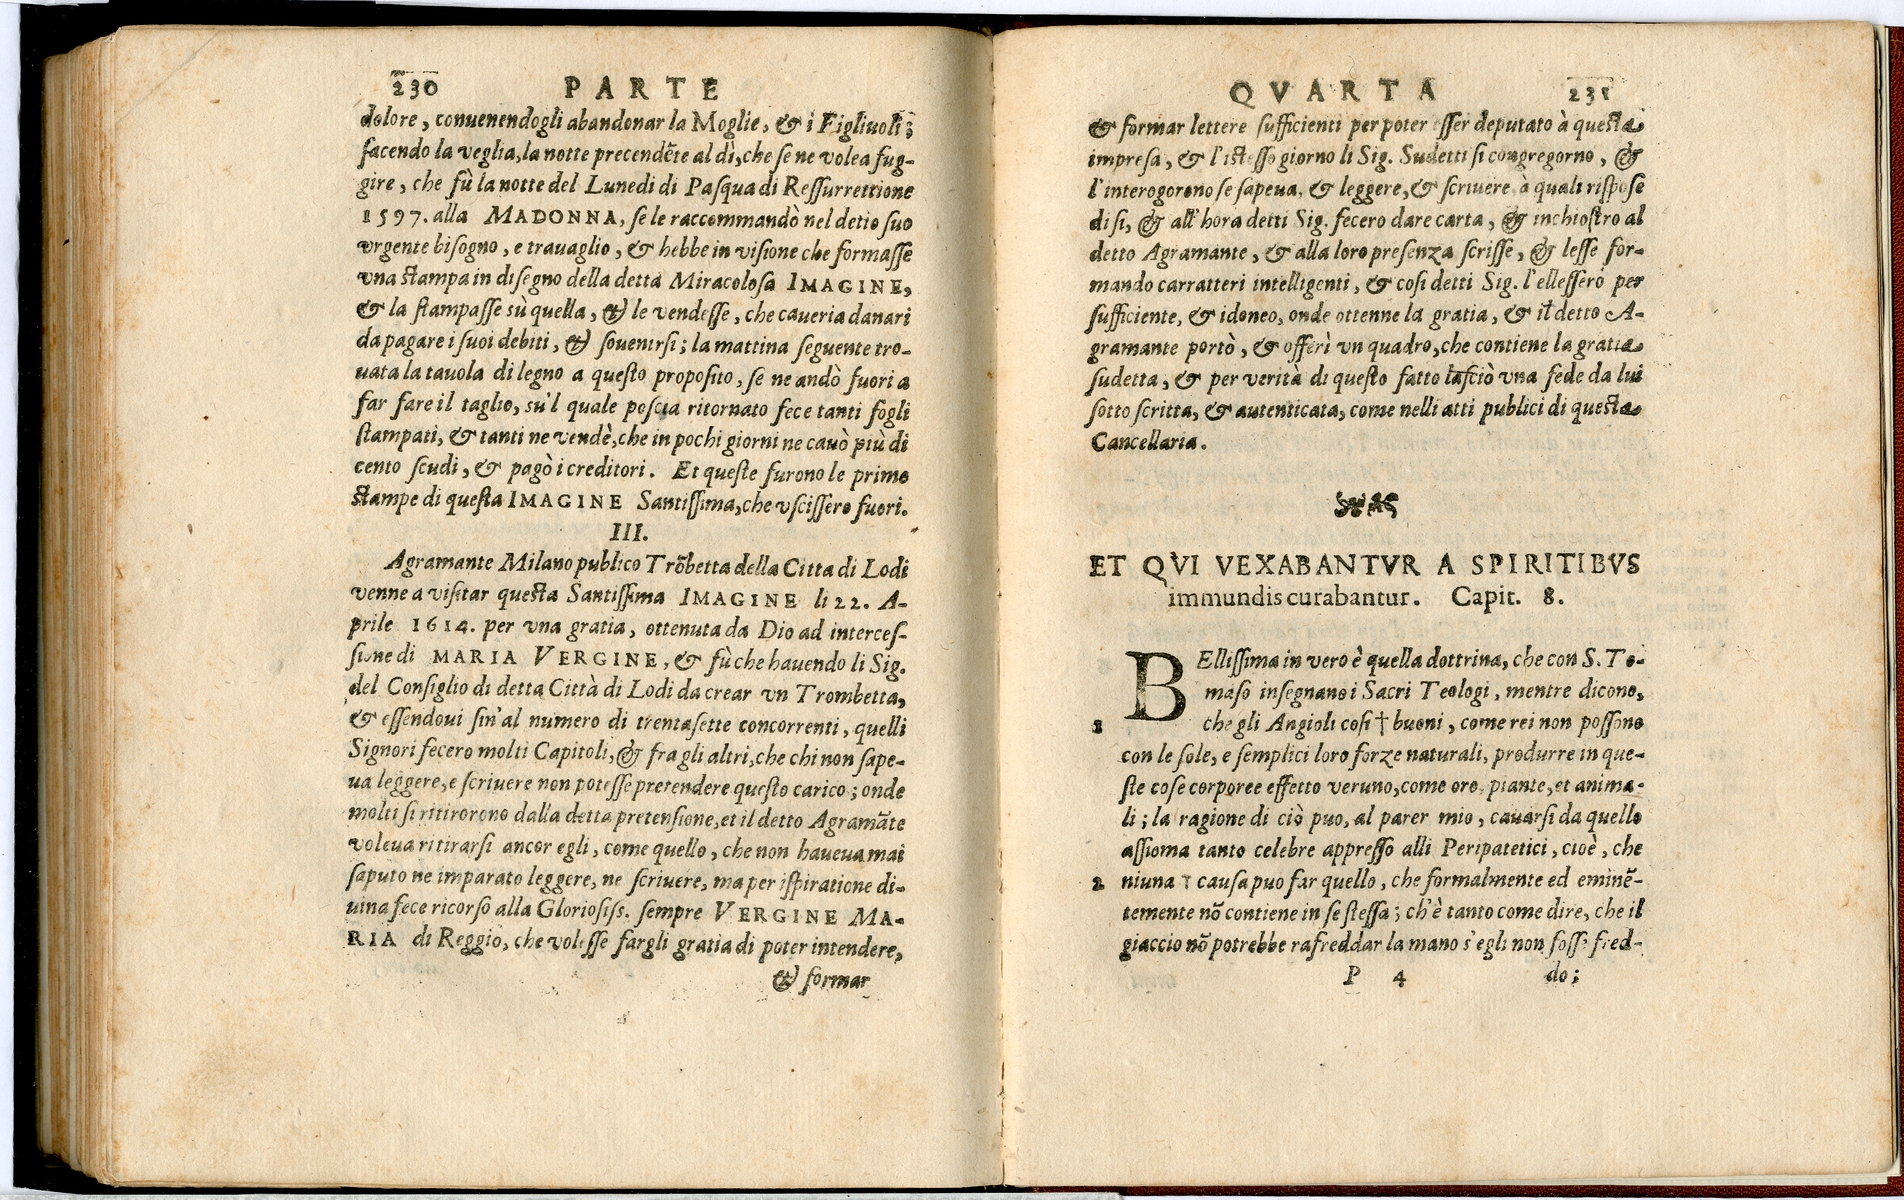 230 PARTE
dolore, conuenendogli abandonar la Moglie, & i Figliuoli;
facendo la veglia, la notte precendẽte al dì, che se ne volea fug-
gire, che fù la notte del Lunedi di Pasqua di Ressurrettione
1597. alla MADONNA, se le raccommandò nel detto suo
vrgente bisogno, e trauaglio, & hebbe in visione che formasse
vna stampa in disegno della detta Miracolosa IMAGINE,
& la stampasse sù quella, & le vendesse, che caueria danari
da pagare i suoi debiti, & souenirsi; la mattina seguente tro-
uata la tauola di legno a questo proposito, se ne andò fuori a
far fare il taglio, su'l quale poscia ritornato fece tanti fogli
stampati, & tanti ne vendè, che in pochi giorni ne cauò più di
cento scudi, & pagò i creditori. Et queste furono le prime
stampe di questa IMAGINE Santissima, che vscissero fuori.
III.
Agramante Milano publico Trõbetta della Citta di Lodi
venne a visitar questa Santissima IMAGINE li 22. A-
prile 1614. per vna gratia, ottenuta da Dio ad interces-
sione di MARIA VERGINE, & fù che hauendo li Sig.
del Consiglio di detta Città di Lodi da crear vn Trombetta,
& essendoui sin'al numero di trentasette concorrenti, quelli
Signori fecero molti Capitoli, & fra gli altri, che chi non sape-
ua leggere, e scriuere non potesse pretendere questo carico; onde
molti si ritirorono dalla detta pretensione, et il detto Agramãte
voleua ritirarsi ancor egli, come quello, che non haueua mai
saputo ne imparato leggere, ne scriuere, ma per ispiratione di-
uina fece ricorso alla Gloriosiss. sempre VERGINE MA-
RIA di Reggio, che volesse fargli gratia di poter intendere,
& formar
QVARTA 231
& formar lettere sufficienti per poter esser deputato à questa
impresa, & l'istesso giorno li Sig. Sudetti si congregorno, &
l'interogorono se sapeua, & leggere, & scriuere, à quali rispose
di si, & all'hora detti Sig. fecero dare carta, & inchiostro al
detto Agramante, & alla loro presenza scrisse, & lesse for-
mando carratteri intelligenti, & cosi detti Sig. l'ellessero per
sufficiente, & idoneo, onde ottenne la gratia, & il detto A-
gramante portò, & offerì vn quadro, che contiene la gratia
sudetta, & per verità di questo fatto lasciò vna fede da lui
sotto scritta, & autenticata, come nelli atti publici di questa
Cancellaria.
ET QVI VEXABANTVR A SPIRITIBVS
immundis curabantur. Capit. 8.
BEllissima in vero è quella dottrina, che con S. To-
maso insegnano i Sacri Teologi, mentre dicono,
1 che gli Angioli cosi † buoni, come rei non possono
con le sole, e semplici loro forze naturali, produrre in que-
ste cose corporee effetto veruno, come oro, piante, et anima-
li; la ragione di ciò puo, al parer mio, cauarsi da quello
assioma tanto celebre appresso alli Peripatetici, cioè, che
2 niuna † causa puo far quello, che formalmente ed eminẽ-
temente nõ contiene in se stessa; ch'è tanto come dire, che il
giaccio nõ potrebbe rafreddar la mano s'egli non fosse fred-
P 4 do;